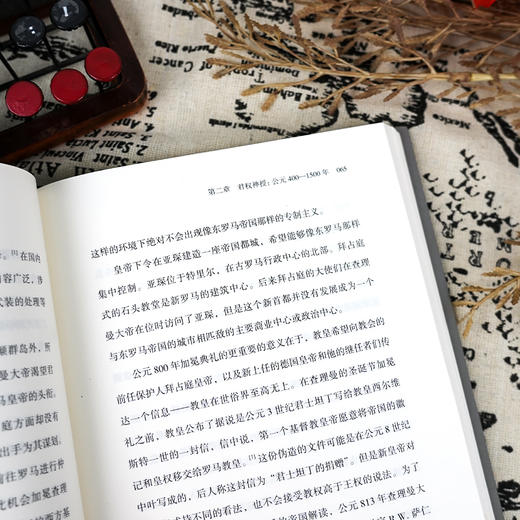 Cancer
Tropic of
Puerto Rico
Dominican
第二章 君权神授：公元400—1500年 065
这样的环境下绝对不会出现像东罗马帝国那样的专制主义。
皇帝下令在亚琛建造一座帝国都城，希望能够像东罗马那样
集中控制。亚琛位于特里尔，在古罗马行政中心的北部。拜占庭
式的石头教堂是新罗马的建筑中心。后来拜占庭的大使们在查理
曼大帝在位时访问了亚琛，但是这个新首都并没有发展成为一个
与东罗马帝国的城市相匹敌的主要商业中心或政治中心。
公元800年加冕典礼的更重要的意义在于，教皇希望向教会的
前任保护人拜占庭皇帝，以及新上任的德国皇帝和他的继任者们传
达一个信息——教皇在世俗界至高无上。在查理曼的圣诞节加冕
礼之前，教皇公布了据说是公元3世纪君士坦丁写给教皇西尔维
斯特一世的一封信，信中说，第一个基督教皇帝愿意将帝国的徽
记和皇权移交给罗马教皇。[1]这份伪造的文件可能是在公元8世纪
中叶写成的，后人称这封信为“君士坦丁的捐赠”。但是新皇帝对
持不同的看法，也不会接受教权高于王权的说法。为了
的帝国解读，公元813年查理曼大
官R.W.萨仁
[1]在国内
内容广泛，涉
式装的处理等
顿群岛外，所
曼大帝渴望君
马皇帝的头衔，
庭方面却没有
出手为其谋划，
前往罗马进行仲
此机会加冕查理
的西方基